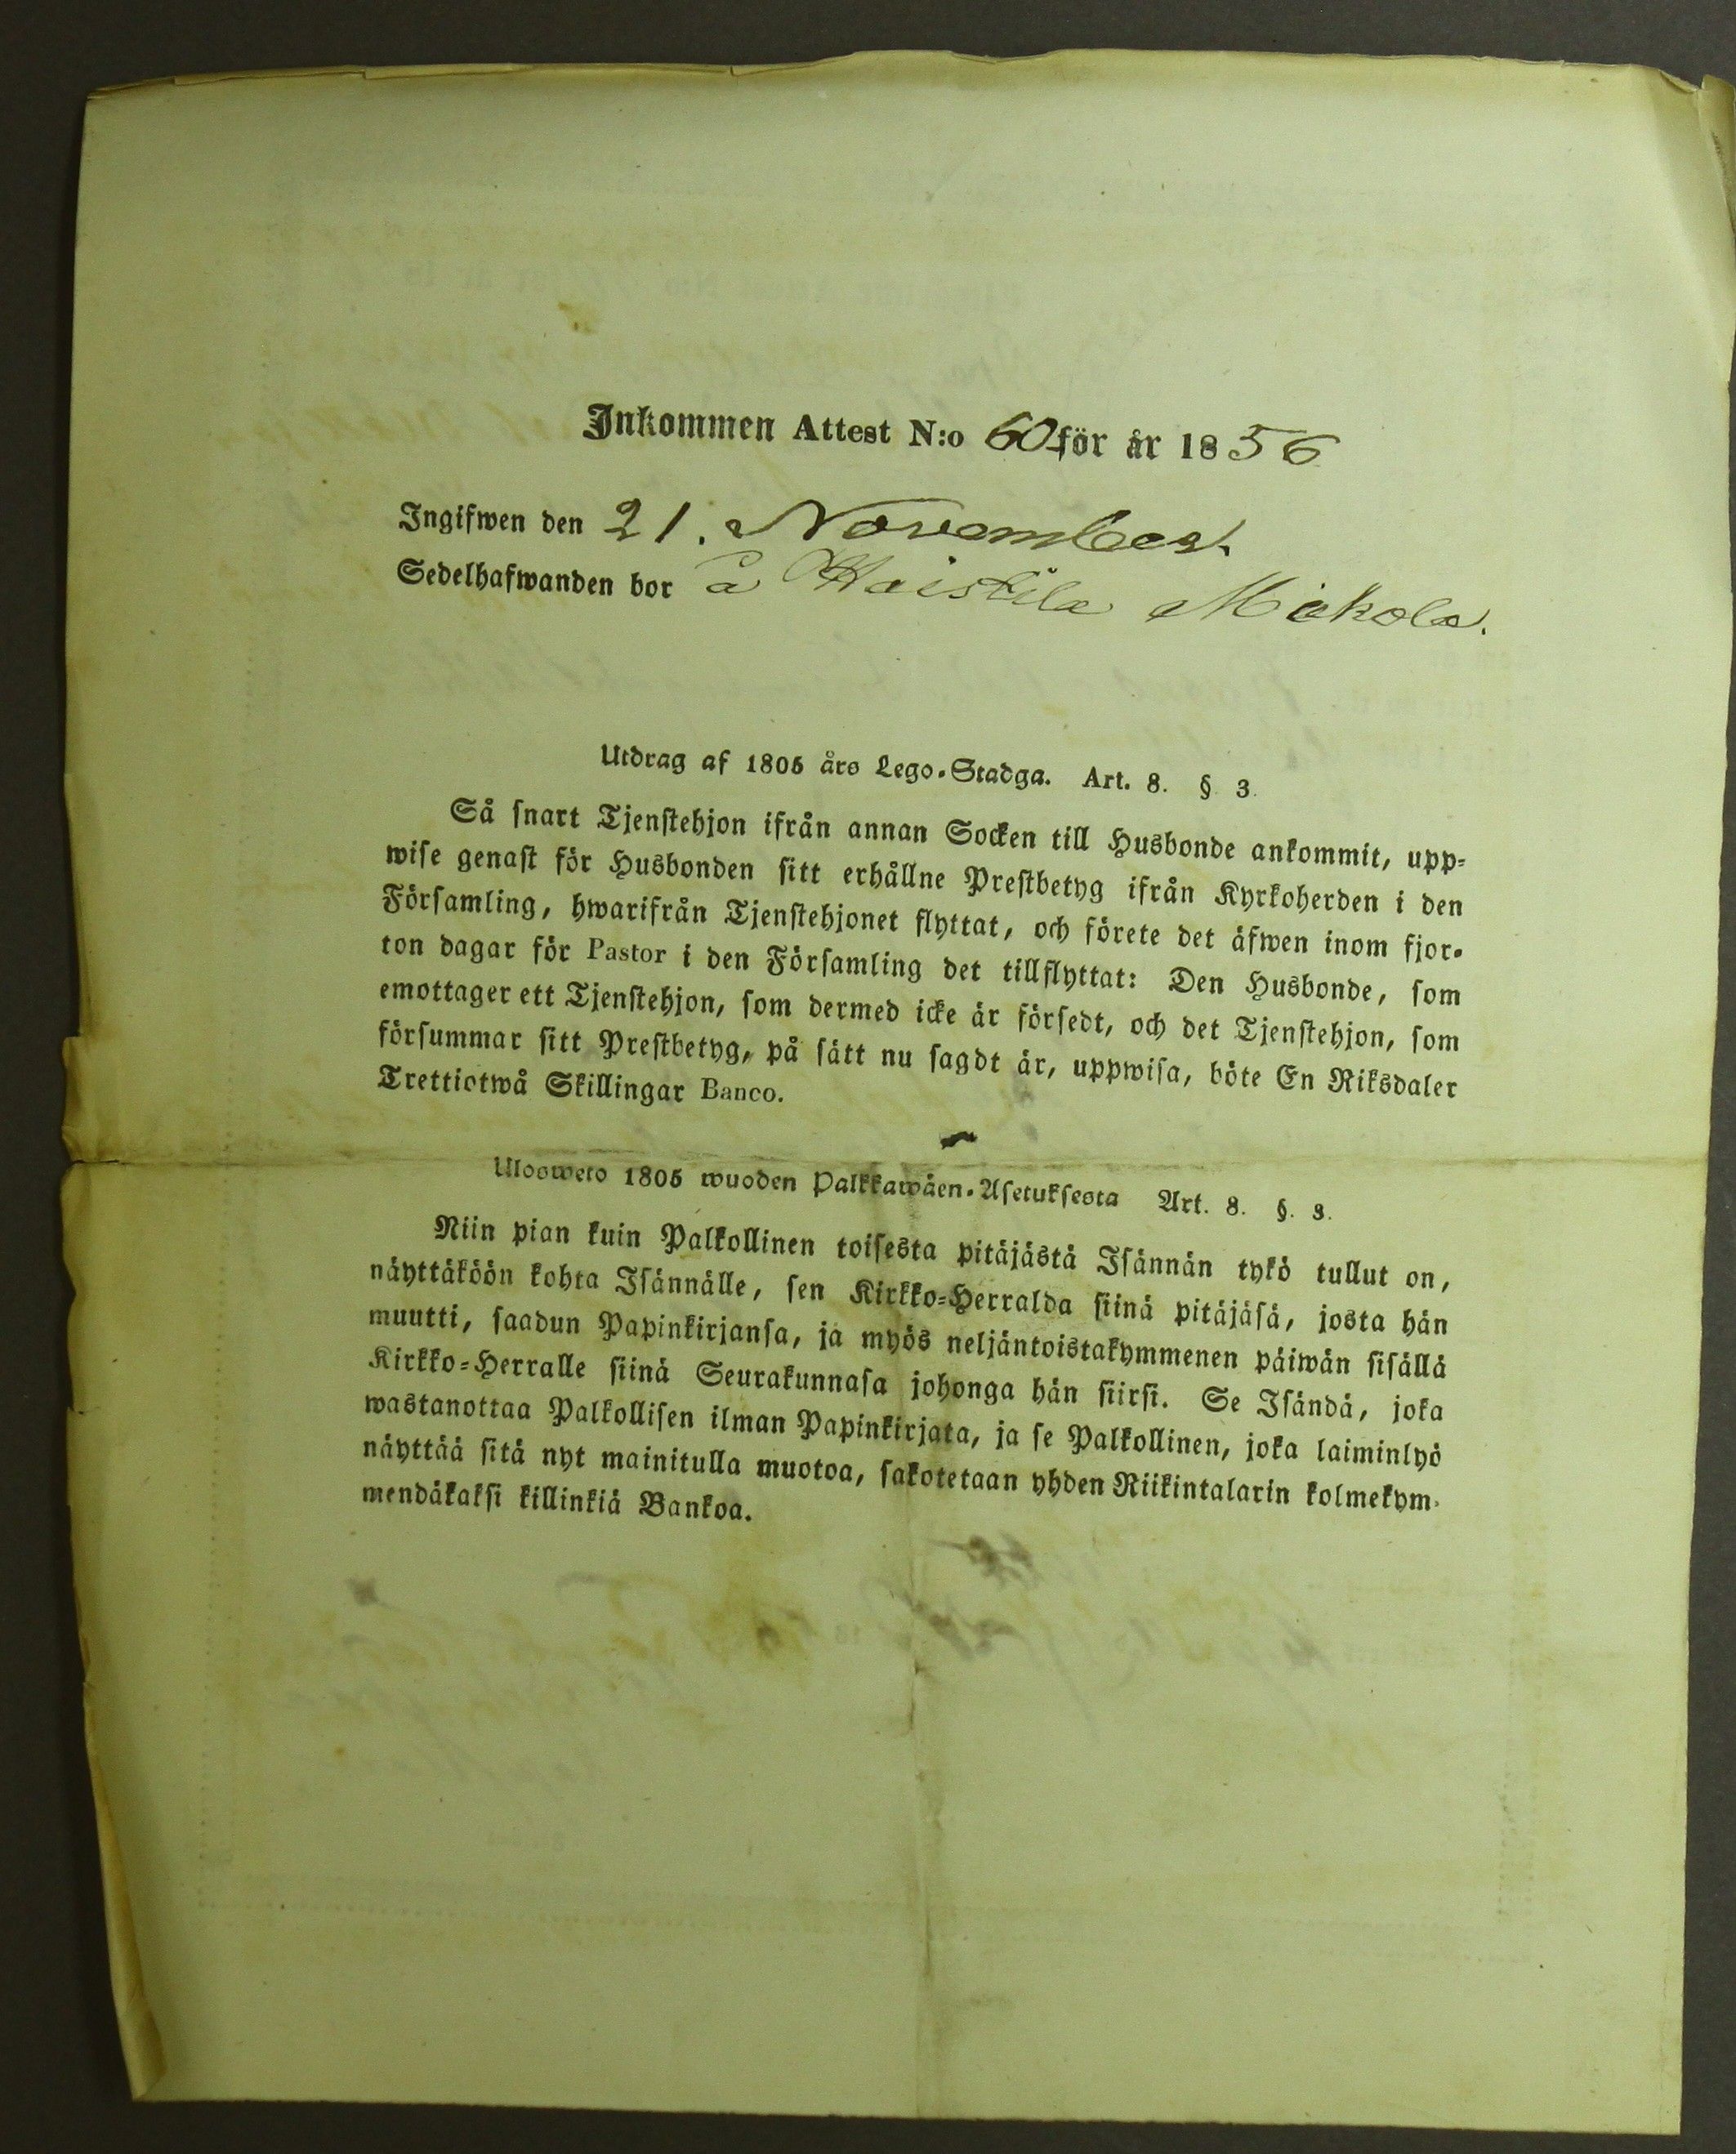 Inkommen Attest N:o 60 för år 1856
Ingifwen den 21. November.
Sedelhafwanden bor å Haistila Mickola.
Utdrag af 1805 års Lego-Stadga. Art. 8. § 3.
Så snart Tjenstehjon ifrån annan Socken till Husbonde ankommit, upp-
wise genast för Husbonden sitt erhållne Prestbetyg ifrån Kyrkoherden i den
Församling, hwarifrån Tjenstehjonet flyttat, och förete det äfwen inom fjor-
ton dagar för Pastor i den Församling det tillflyttat: Den Husbonde, som
emottager ett Tjenstehjon, som dermed icke är försedt, och det Tjenstehjon, som
försummar sitt Prestbetyg, på sätt nu sagdt är, uppwisa, böte En Riksdaler
Trettiotwå Skillingar Banco.
Ulosweto 1805 wuoden Palkkawäen-Asetuksesta Art. 8. §. 3.
Niin pian kuin Palkollinen toisesta pitäjästä Isännän tykö tullut on,
näyttäköön kohta Isännälle, sen Kirkko-Herralda siinä pitäjäsä, josta hän
muutti, saadun Papinkirjansa, ja myös neljäntoistakymmenen päiwän sisällä
Kirkko-Herralle siinä Seurakunnasa johonga hän siirsi. Se Isändä, joka
wastanottaa Palkollisen ilman Papinkirjata, ja se Palkollinen, joka laiminlyö
näyttää sitä nyt mainitulla muotoa, sakotetaan yhden Riikintalarin kolmekym-
mendäkaksi killinkiä Bankoa.